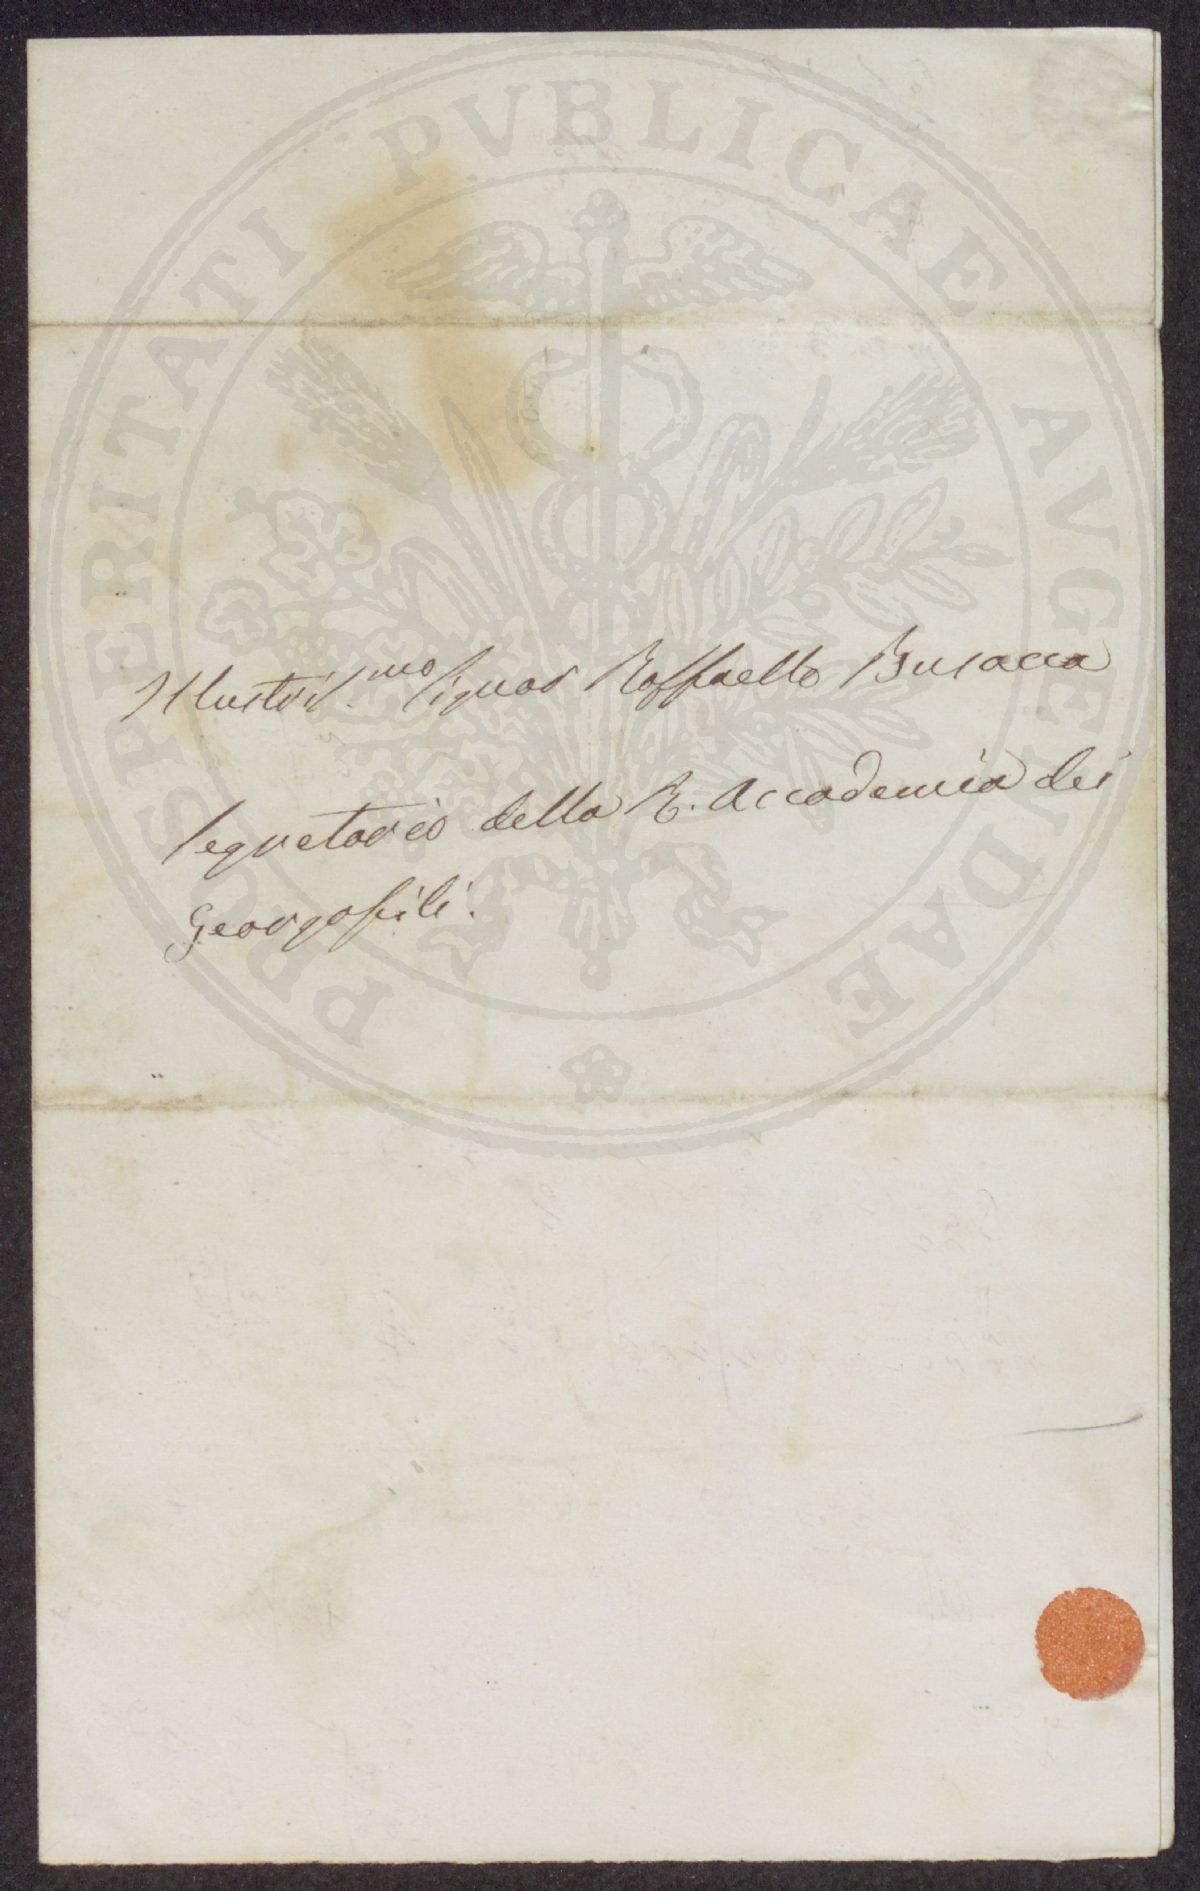 PROSPERITATI PVBLICAE AVGENDAE
Illustriss.mo Signor Raffaello Busacca
Segretario della R. Accademia dei
Georgofili.